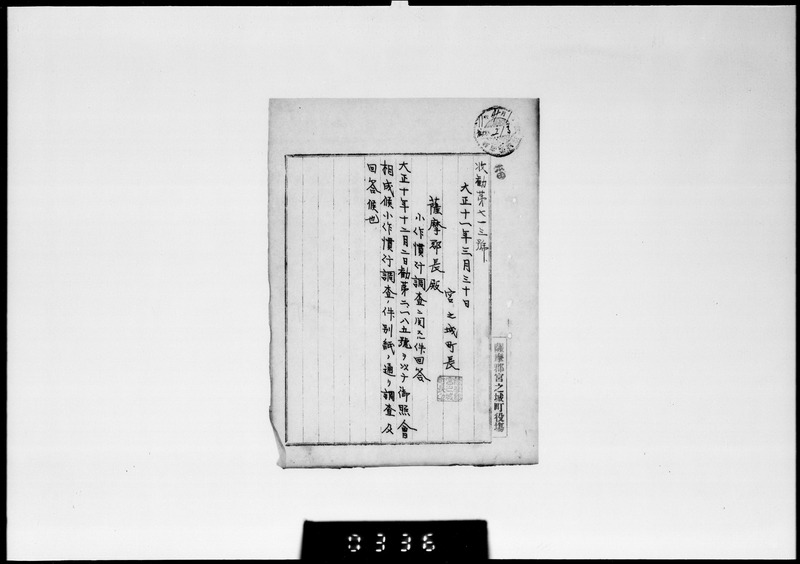 收勧第七一三號
大正十一年三月三十日
宮之城町長
薩摩郡長殿
小作慣行調査ニ関スル件回答
大正十年十二月二日勧第二一八五號ヲ以テ御照會
相成候小作慣行調査ノ件別紙ノ通リ調査及
回答候也
薩摩郡宮之城町役場
0336